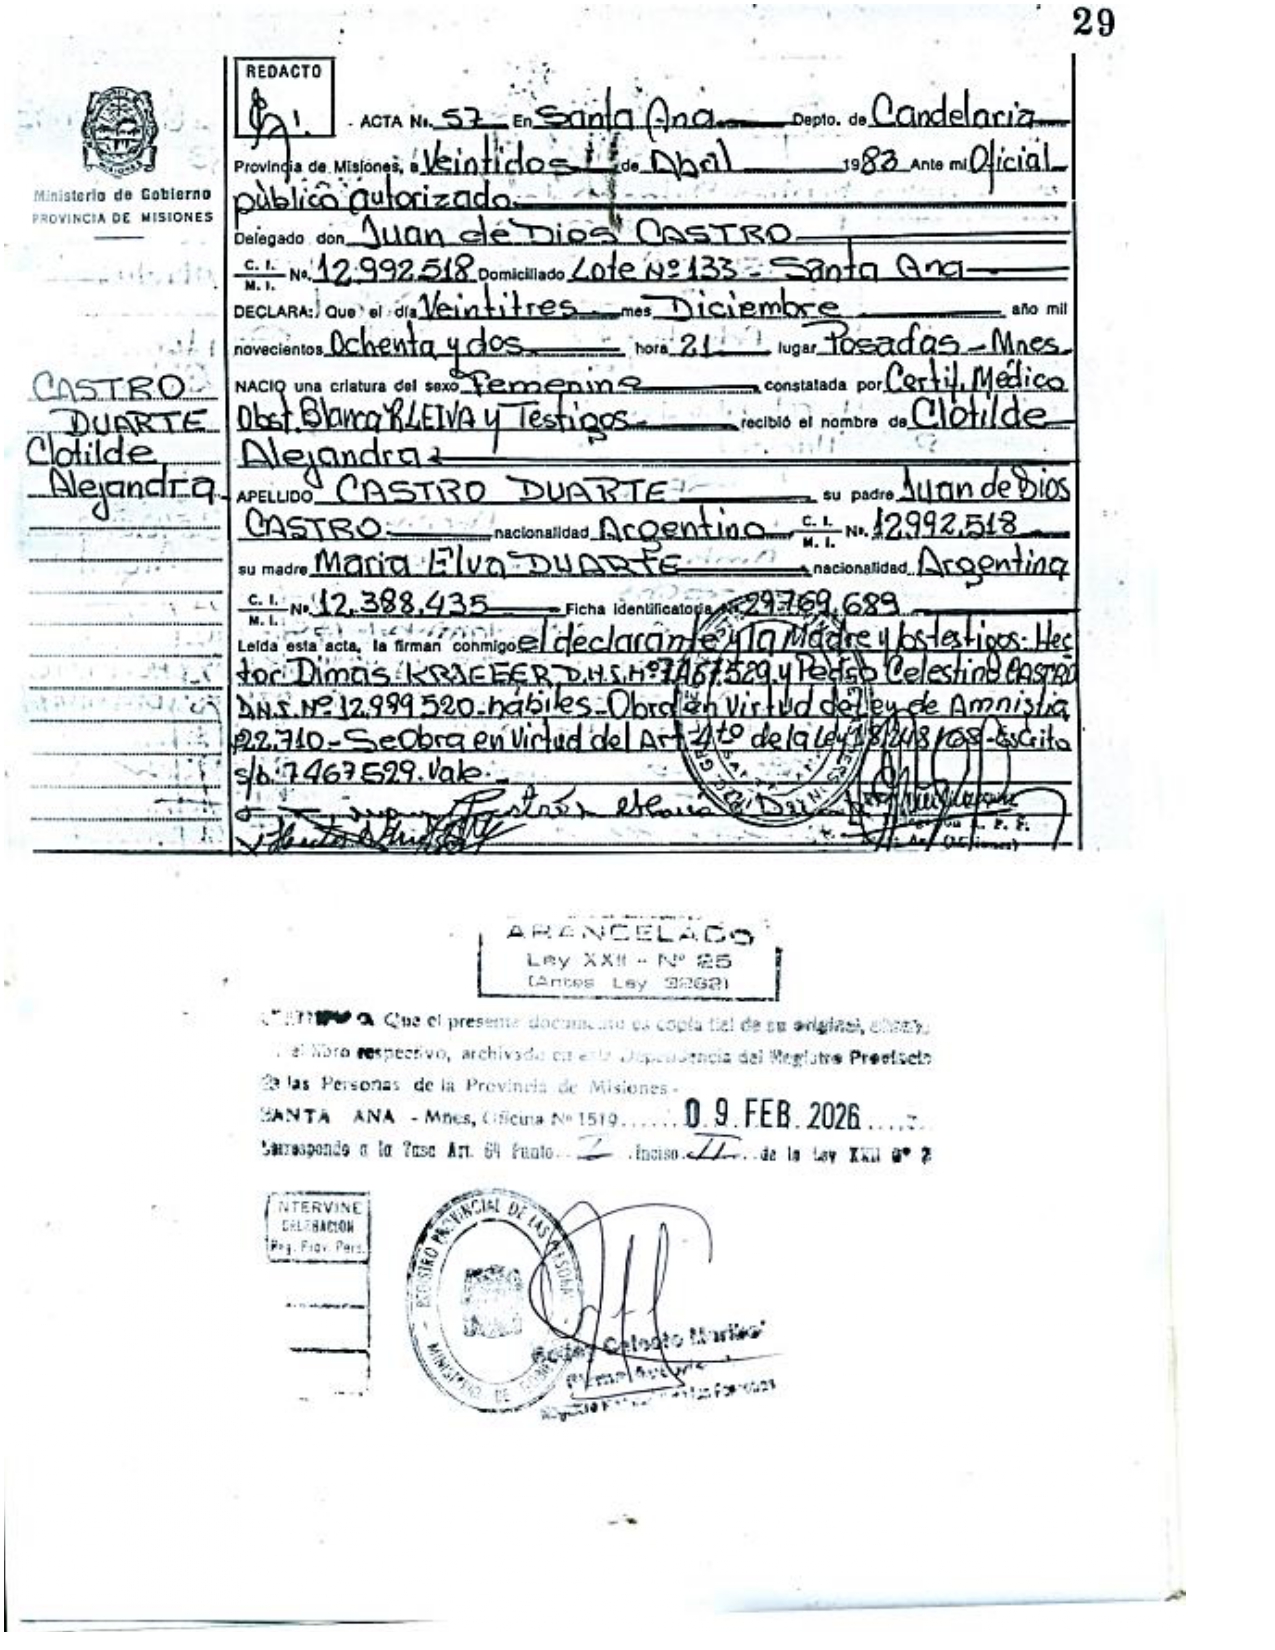 29
REDACTO
ACTA Nº. 57 En Santa Ana Depto. de Candelaria
Provincia de Misiones, a Veintidos de Abril 1983 Ante mi Oficial
Ministerio de Gobierno
PROVINCIA DE MISIONES
público autorizado
Delegado don Juan de Dios CASTRO
C. I. M. I. Nº. 12.992.518 Domiciliado Lote Nº 133 - Santa Ana
DECLARA: Que el día Veintitres mes Diciembre año mil
novecientos Ochenta y dos hora 21 lugar Posadas - Mnes.
CASTRO
DUARTE
Clotilde
Alejandra
NACIO una criatura del sexo Femenino constatada por Certif. Médico
Obst. Blanca R. LEIVA y Testigos recibió el nombre de Clotilde
Alejandra
APELLIDO CASTRO DUARTE su padre Juan de Dios
CASTRO nacionalidad Argentino C. I. M. I. Nº. 12.992.518
su madre Maria Elva DUARTE nacionalidad Argentina
C. I. M. I. Nº 12.388.435 Ficha Identificatoria Nº 29.769.689
Leida esta acta, la firman conmigo el declarante y la Madre y los testigos: Hec
tor Dimas KRAEGER D.N.I. Nº 7467529 y Pedro Celestino CASTRO
D.N.I. Nº 12.999.520 - hábiles - Obra en Virtud de Ley de Amnistia
22.710 - Se Obra en Virtud del Art. 4to de la Ley 18248/69 - Escrito
s/b. 7467529. Vale.
ARANCELADO
Ley XXII - Nº 25
(Antes Ley 3262)
Que el presente documento es copia fiel de su original,
el libro respectivo, archivado en esta Dependencia del Registro Provincia
de las Personas de la Provincia de Misiones -
SANTA ANA - Mnes, Oficina Nº 1519 09 FEB. 2026
Corresponde a la Tasa Art. 64 Punto I Inciso II de la Ley XXII Nº 2
INTERVINE
DELEGACION
Reg. Prov. Pers.
REGISTRO PROVINCIAL DE LAS PERSONAS
MINISTERIO DE GOBIERNO
Celeste Marisol